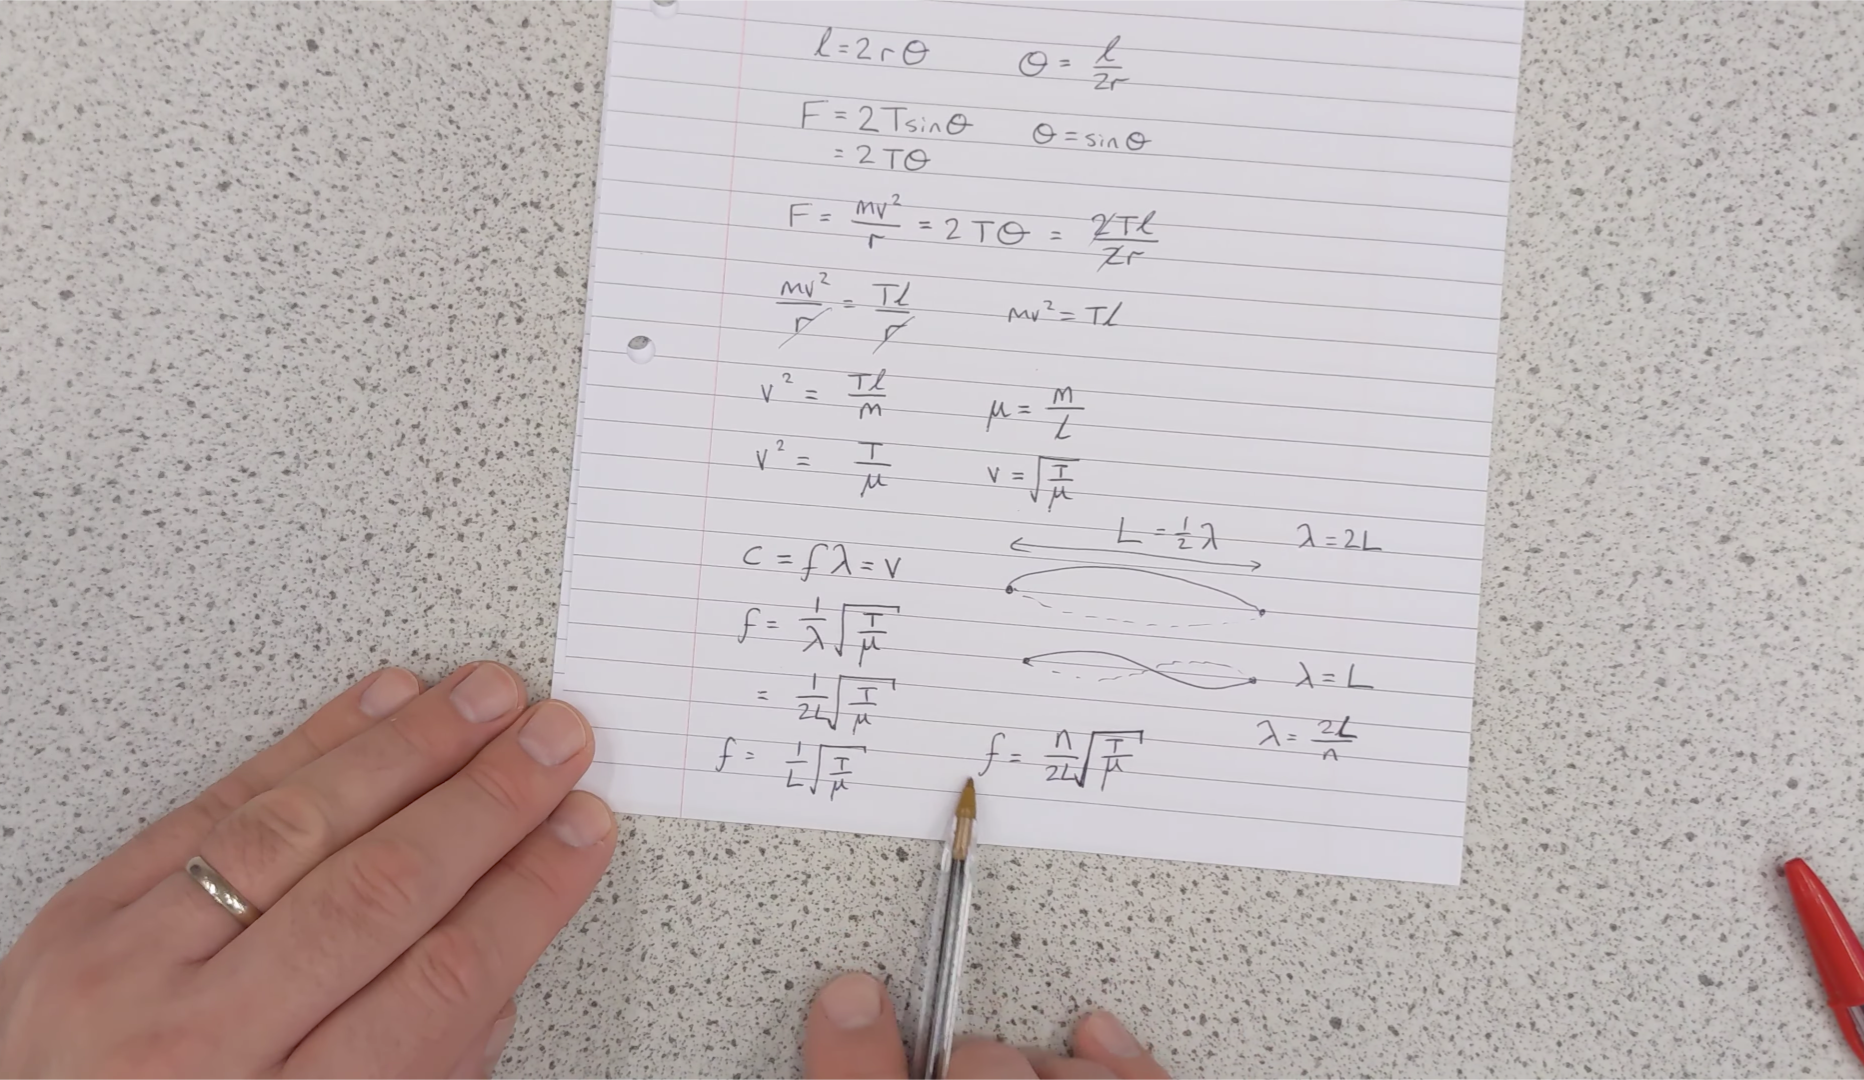 l = 2rθ θ = l/2r
F = 2Tsinθ θ = sinθ
= 2Tθ
F = mv²/r = 2Tθ = 2Tl/2r
mv²/r = Tl/r mv² = Tl
v² = Tl/m μ = m/L
v² = T/μ v = √(T/μ)
L = ½λ λ = 2L
c = fλ = v
f = 1/λ √(T/μ)
λ = L
= 1/2L √(T/μ)
f = 1/L √(T/μ) f = n/2L √(T/μ) λ = 2L/n